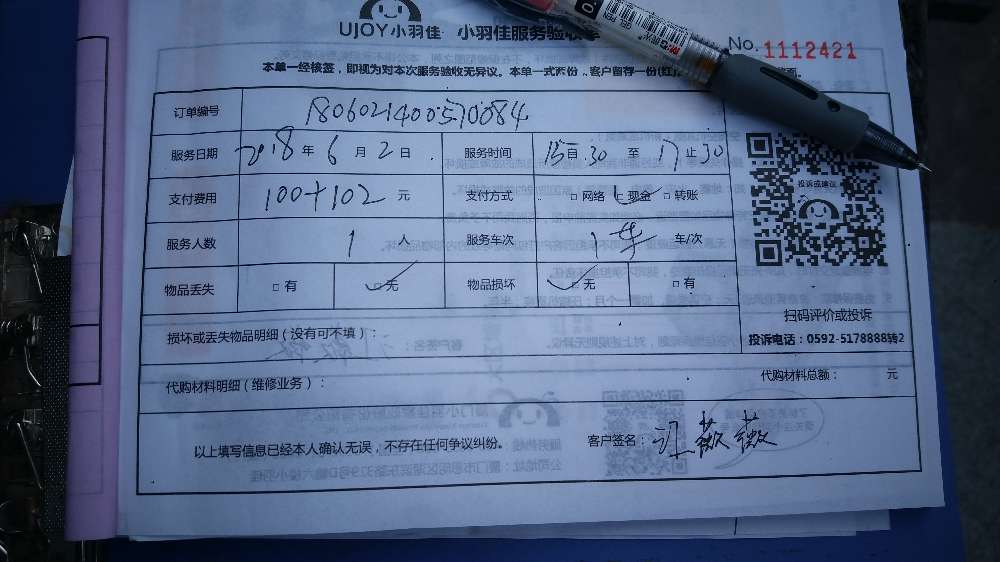 UJOY小羽佳 小羽佳服务验收单
No. 1112421
本单一经核签，即视为对本次服务验收无异议。本单一式两份，客户留存一份(红)
订单编号 180602140051084
服务日期 2018 年 6 月 2 日 服务时间 15:30 至 17:30
支付费用 100+102 元 支付方式 □ 网络 □ 现金 □ 转账
服务人数 1 人 服务车次 1车 车/次
物品丢失 □ 有 □ 无 物品损坏 □ 无 □ 有
投诉或建议
扫码评价或投诉
投诉电话：0592-5178888转2
损坏或丢失物品明细（没有可不填）：
代购材料明细（维修业务）： 代购材料总额： 元
以上填写信息已经本人确认无误，不存在任何争议纠纷。 客户签名： 薇薇